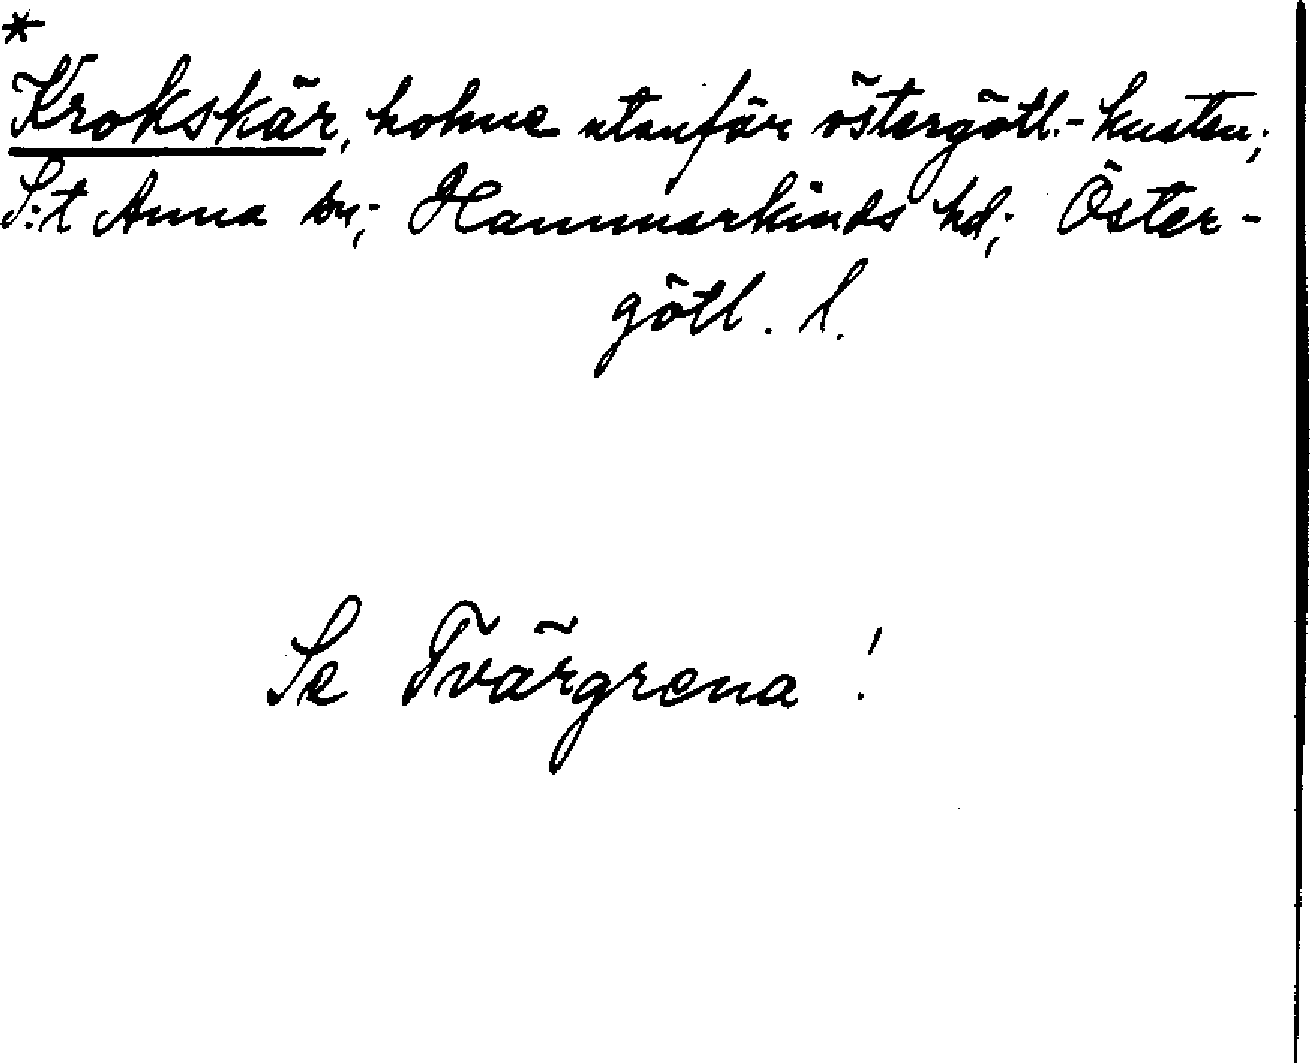 *
Krokskär, holme utanför östergötl.-kusten;
S:t Anna sn; Hammarkinds hd; Öster-
götl. l.
Se Tvärgrena !